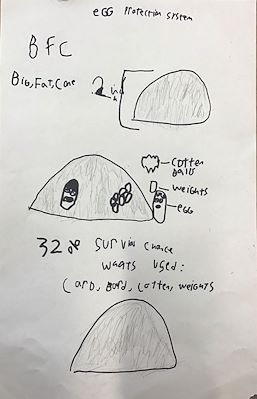 egg Protection system
BFC
Big, Fat, Cone
2 in
cotten balls
weights
egg
32% survive chance
waats used:
Card, Bord, Cotten, weights